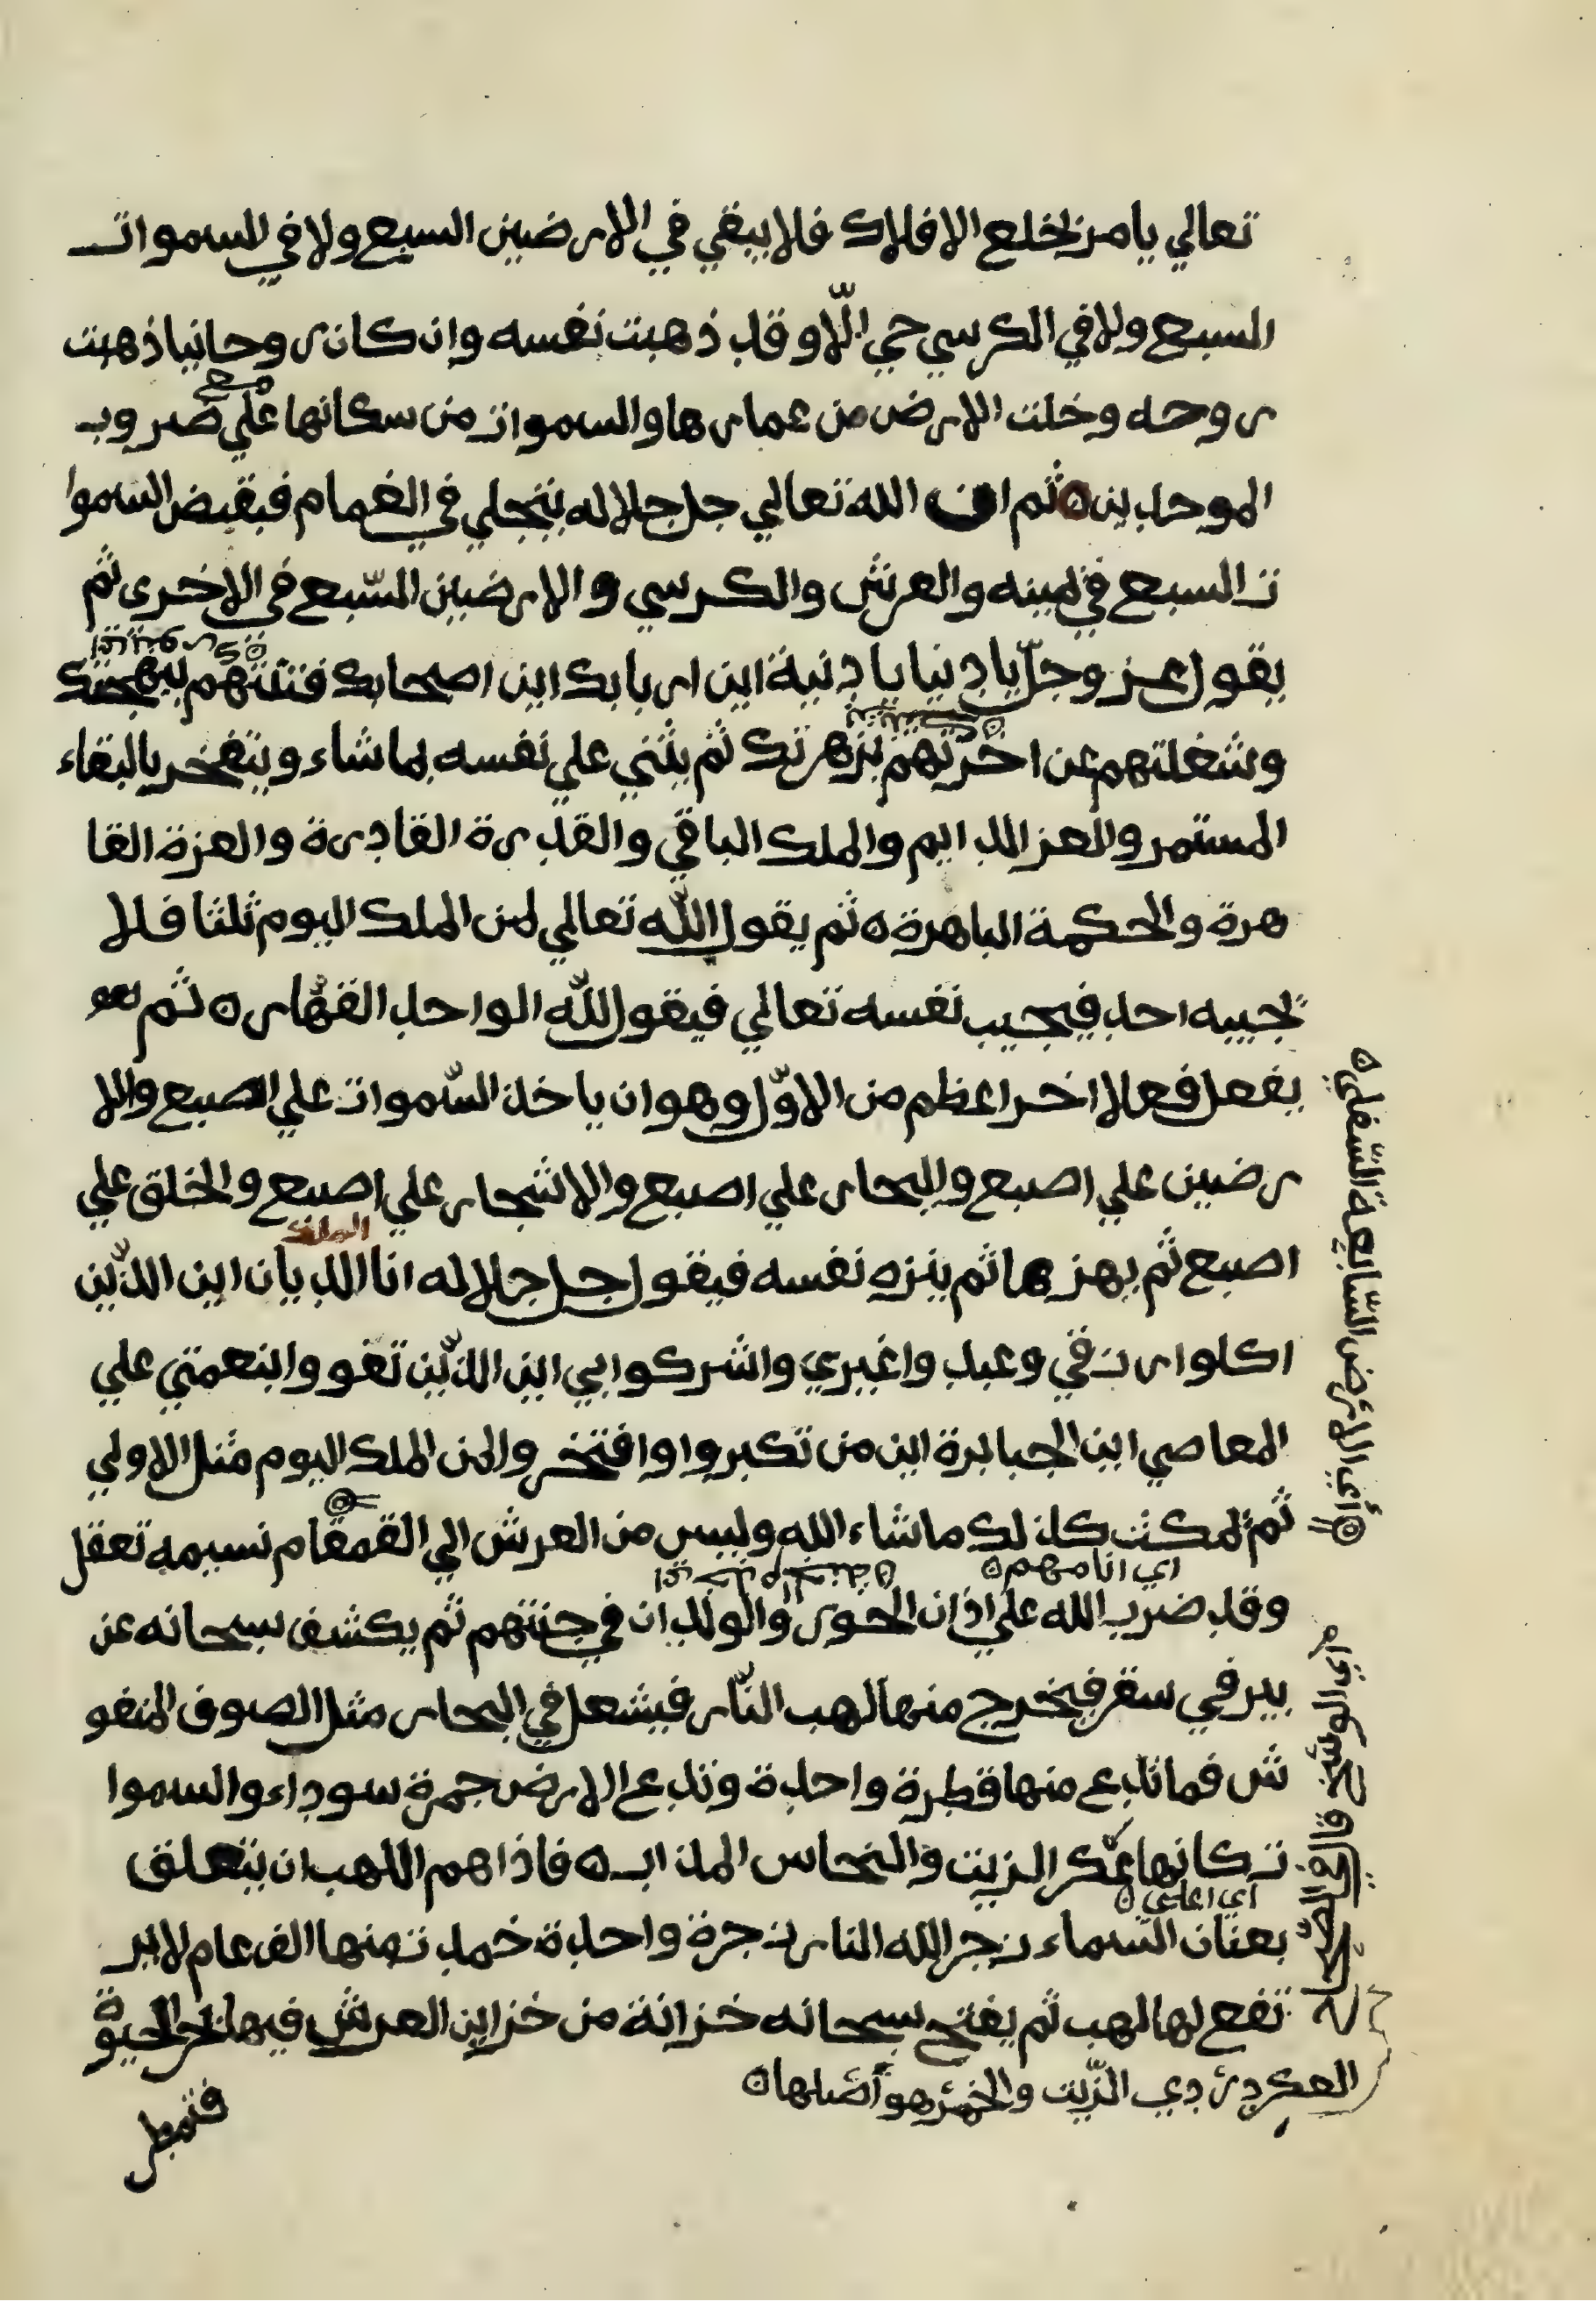 تعالي يامر بخلع الافلاك فلا يبقي في الارضين السبع ولا في السموات
السبع ولا في الكرسي حي الّا وقد ذهبت نفسه وان كان روحانيا ذهبت
روحه وخلت الارض من عمارها والسموات من سكانها علي ضروب
الموحدين ثم ان الله تعالي جل جلاله يتجلي في الغمام فيقبض السموا
ت السبع في يمينه والعرش والكرسي والارضين السّبع في الاخرى ثم
يقول عز وجلّ يا دنيا يا دنية اين اربابك اين اصحابك فتنتهم ببهجتك
وشغلتهم عن اخرتهم بزهرتك ثم يثني علي نفسه بما شاء ويتفخر بالبقاء
المستمر والعز الدايم والملك الباقي والقدرة القادرة والعزة القا
هرة والحكمة الباهرة ثم يقول اللّه تعالي لمن الملك اليوم ثلثا فلا
يجيبه احد فيجيب نفسه تعالي فيقول للّه الواحد القهّار ثم
يفعل فعلا اخر اعظم من الاوّل وهو ان ياخذ السّموات علي اصبع والا
رضين علي اصبع والبحار علي اصبع والاشجار علي اصبع والخلق علي
الملك
اصبع ثم يهزها ثم ينزه نفسه فيقول جل جلاله انا الديان اين الذّين
اكلوا رزقي وعبدوا غيري واشركوا بي اين الذّين تقووا بنعمتي علي
المعاصي اين الجبابرة اين من تكبروا وافتخروا لمن الملك اليوم مثل الاولي
ثم يمكث كذلك ما شاء الله وليس من العرش الي القمقام نسيمه تعقل
اي انامهم
وقد ضرب الله علي اذان الحور والولدان في جنتهم ثم يكشف سبحانه عن
بير في سقر فيخرج منها لهب النّار فيشعل في البحار مثل الصوف المنفو
ش فما تدع منها قطرة واحدة وتدع الارض جمرة سوداء والسموا
ت كانها عكر الزيت والنحاس المذاب فاذا هم اللهب ان يتعلق
اي اعالي
بعنان السّماء زجر الله النار زجرة واحدة خمدت منها الف عام لا ير
تفع لها لهب ثم يفتح سبحانه خزانة من خزاين العرش فيها بحر الحيوة
العكر دردي الزّيت والخمر هو أصلها
فتمطر
أي الارض السّابعة السّفلي